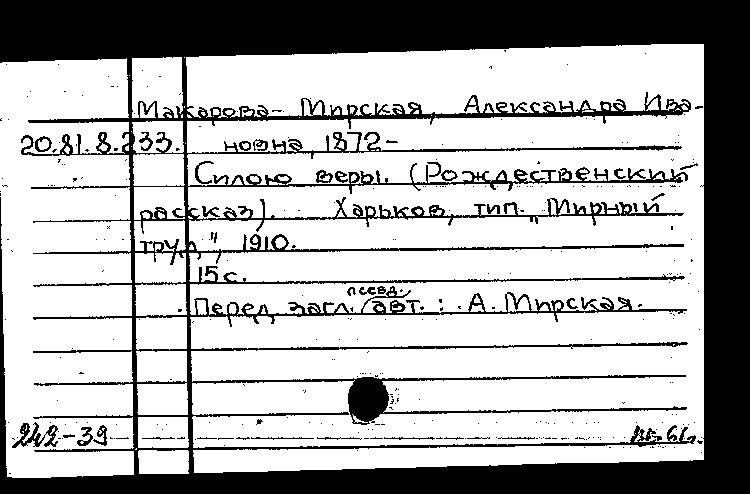 Макарова-Мирская, Александра Ива-
20.81.8.233. новна, 1872-
Силою веры. (Рождественский
рассказ). Харьков, тип. „Мирный
труд", 1910.
15 с.
псевд.
Перед загл. авт.: А. Мирская.
242-39